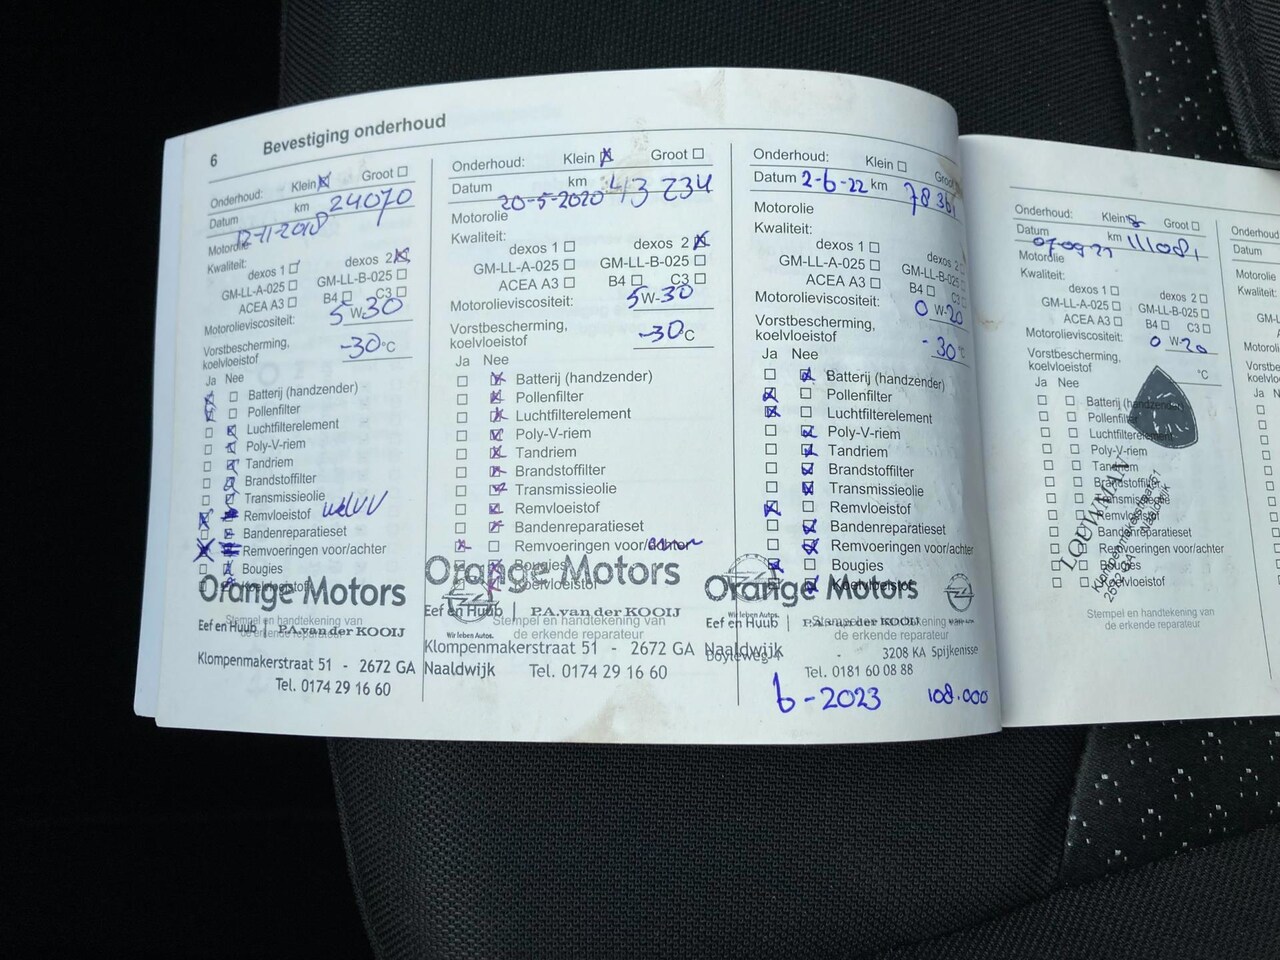 6 Bevestiging onderhoud
Onderhoud: Klein Groot
Datum km 24070
12-11-2018
Motorolie
Kwaliteit:
dexos 1 dexos 2
GM-LL-A-025 GM-LL-B-025
ACEA A3 B4 C3
Motorolieviscositeit: 5 W 30
Vorstbescherming,
koelvloeistof -30 °C
Ja Nee
Batterij (handzender)
Pollenfilter
Luchtfilterelement
Poly-V-riem
Tandriem
Brandstoffilter
Transmissieolie
Remvloeistof
Bandenreparatieset
Remvoeringen voor/achter
Bougies
Koelvloeistof
Orange Motors
Eef en Huub | P.A. van der KOOIJ
Klompenmakerstraat 51 - 2672 GA Naaldwijk
Tel. 0174 29 16 60
Onderhoud: Klein Groot
Datum km 43 234
20-5-2020
Motorolie
Kwaliteit:
dexos 1 dexos 2
GM-LL-A-025 GM-LL-B-025
ACEA A3 B4 C3
Motorolieviscositeit: 5 W-30
Vorstbescherming,
koelvloeistof -30 °C
Ja Nee
Batterij (handzender)
Pollenfilter
Luchtfilterelement
Poly-V-riem
Tandriem
Brandstoffilter
Transmissieolie
Remvloeistof
Bandenreparatieset
Remvoeringen voor/achter
Bougies
Koelvloeistof
Orange Motors
Eef en Huub | P.A. van der KOOIJ
Wir leben Autos.
Stempel en handtekening van
de erkende reparateur
Klompenmakerstraat 51 - 2672 GA Naaldwijk
Tel. 0174 29 16 60
Onderhoud: Klein Groot
Datum 2-6-22 km 78 361
Motorolie
Kwaliteit:
dexos 1 dexos 2
GM-LL-A-025 GM-LL-B-025
ACEA A3 B4 C3
Motorolieviscositeit: 0 W-20
Vorstbescherming,
koelvloeistof -30 °C
Ja Nee
Batterij (handzender)
Pollenfilter
Luchtfilterelement
Poly-V-riem
Tandriem
Brandstoffilter
Transmissieolie
Remvloeistof
Bandenreparatieset
Remvoeringen voor/achter
Bougies
Koelvloeistof
Orange Motors
Wir leben Autos.
Eef en Huub | P.A. van der KOOIJ
Stempel en handtekening van
de erkende reparateur
Doyleweg - 3208 KA Spijkenisse
Tel. 0181 60 08 88
6-2023 108.000
Onderhoud: Klein Groot
Datum km 111081
07-09-23
Motorolie
Kwaliteit:
dexos 1 dexos 2
GM-LL-A-025 GM-LL-B-025
ACEA A3 B4 C3
Motorolieviscositeit: 0 W-20
Vorstbescherming,
koelvloeistof °C
Ja Nee
Batterij (handzender)
Pollenfilter
Luchtfilterelement
Poly-V-riem
Tandriem
Brandstoffilter
Transmissieolie
Remvloeistof
Bandenreparatieset
Remvoeringen voor/achter
Bougies
Koelvloeistof
LOUWMAN
Klompenmakerstraat 51
2672 GA Naaldwijk
Stempel en handtekening van
de erkende reparateur
Onderhoud
Datum
Motorolie
Kwaliteit:
Ja